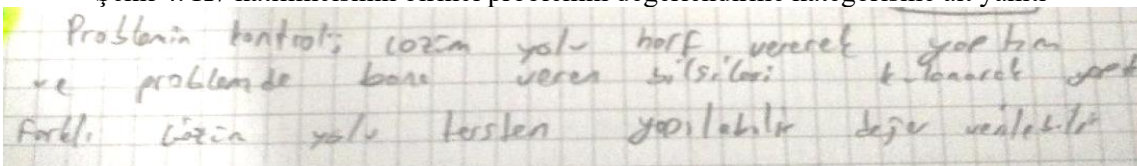 Problemin kontrolü çözüm yolu harf vererek yaptım
ve problemde bana veren bilgileri kullanarak
Farklı çözüm yolu tersten yapılabilir değer verilebilir